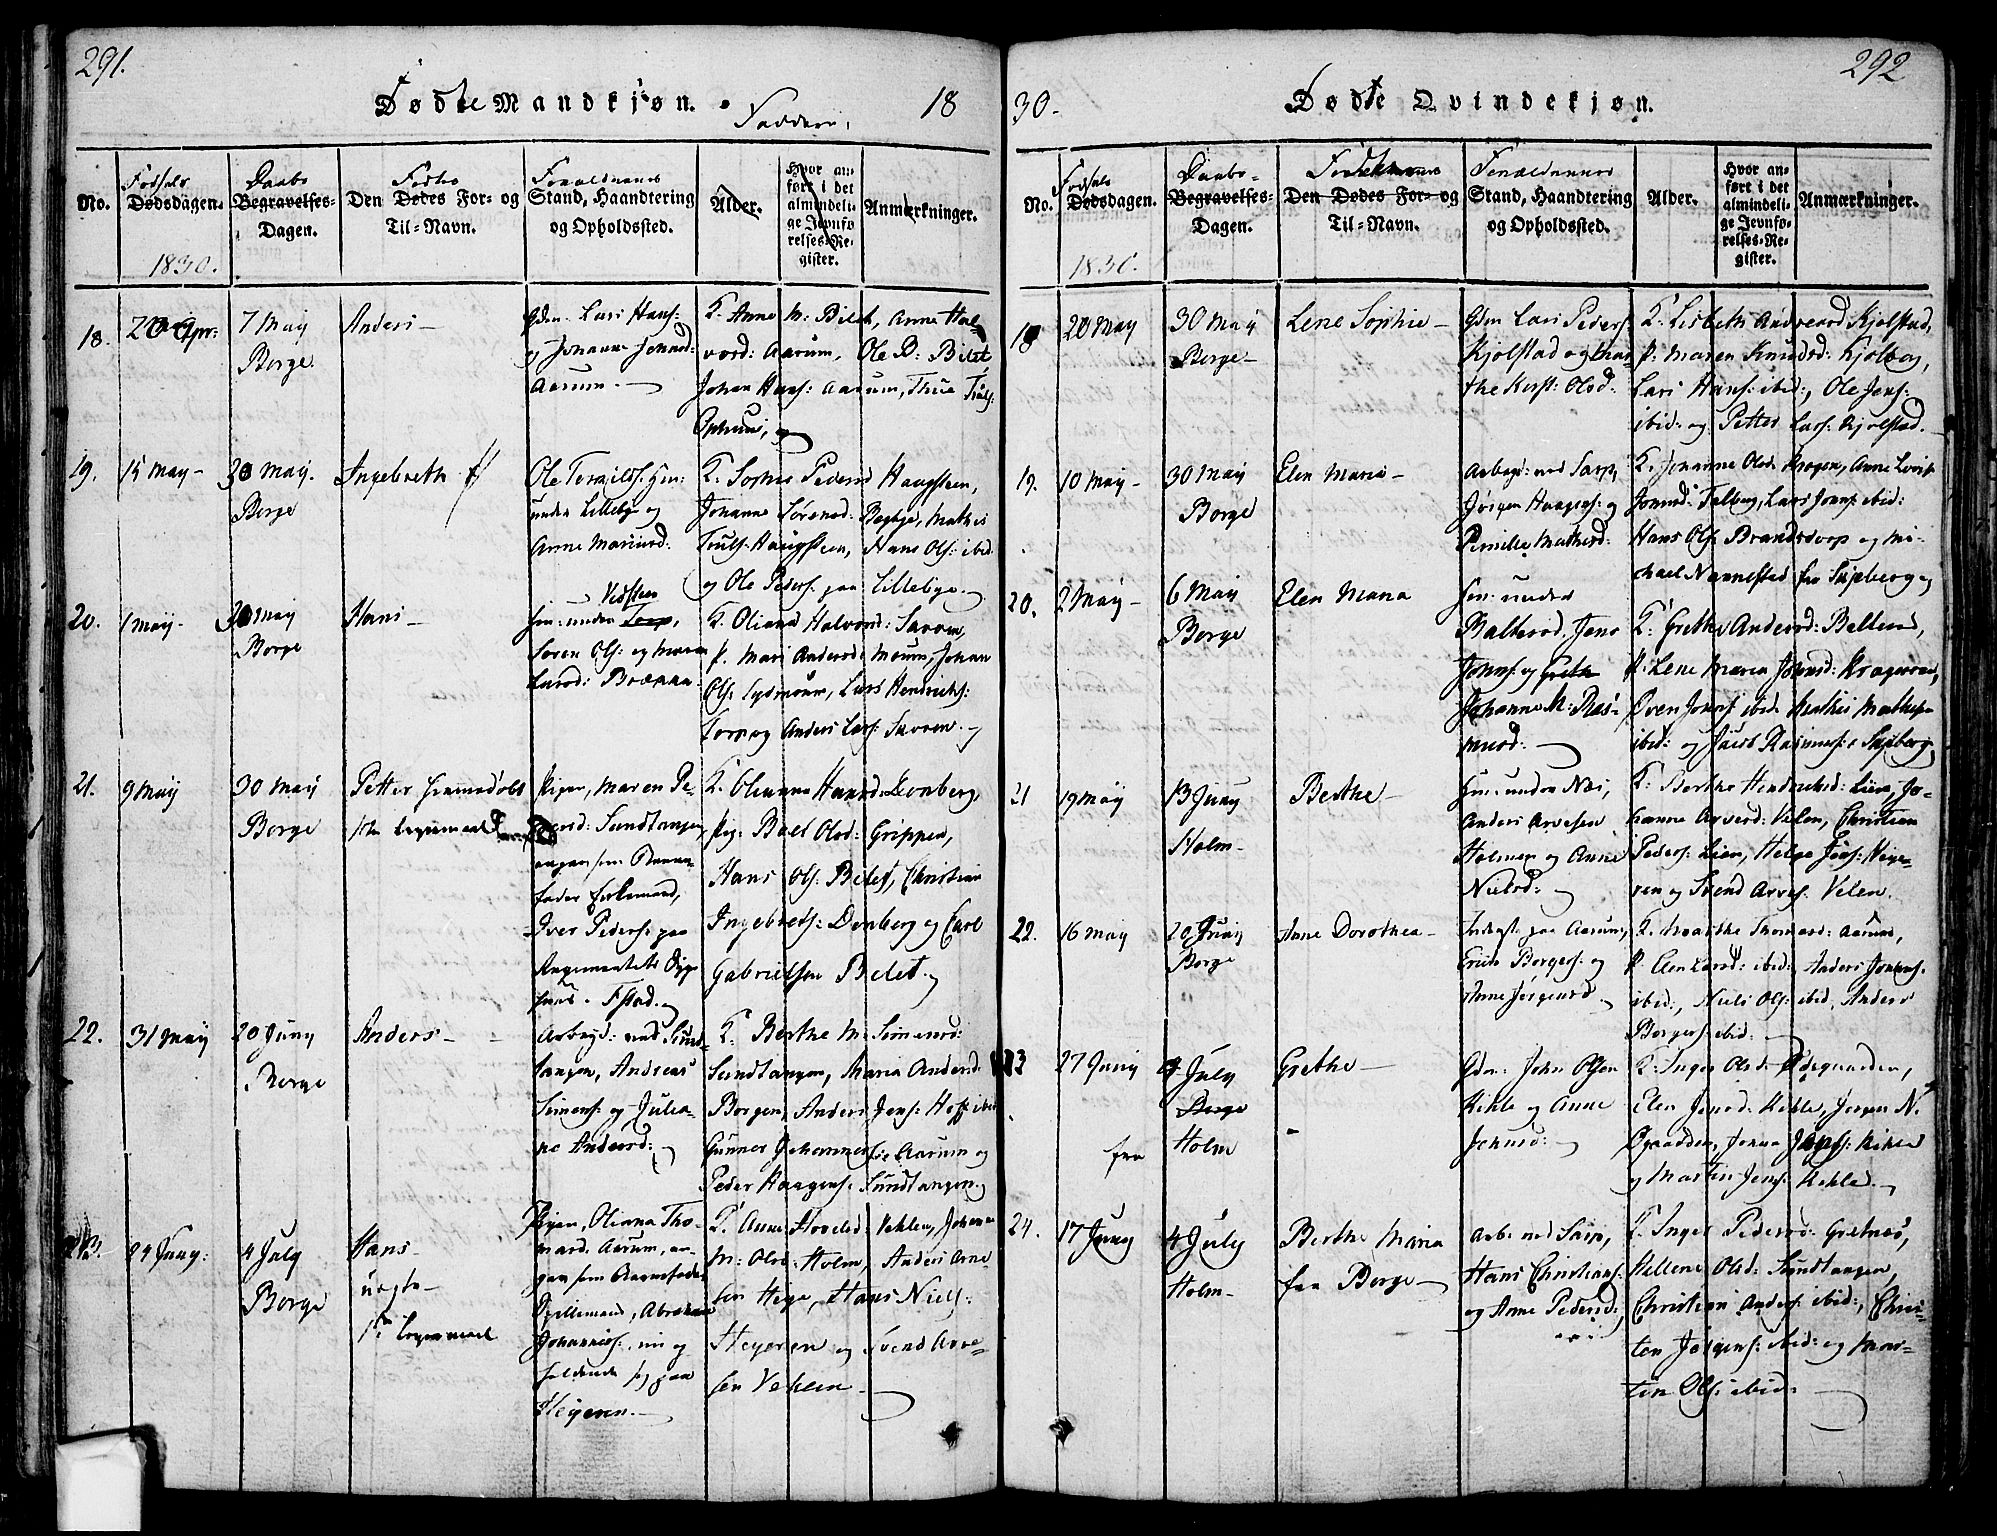 291.
Fødte Mandkjøn.
Faddere.
18
No.
Fødsels
Dødsdagen.
1830.
Daabs
Begravelses-
Dagen.
Fødtes
Den Dødes For- og
Til-Navn.
Forældrenes
Stand, Haandtering
og Opholdssted.
Alder.
Hvor an-
ført i det
almindeli-
ge Jevnfø-
relses-Re-
gister.
Anmærkninger.
18.
7 May
Borge
Anders
Gdm. Lars Hans:
og Johanne
Aarum.
F. Anne M: Bilet, Anne Hal-
vord: Aarum, Ole B: Bilet
Johan Hans: Aarum, Thue
19.
15 May
30 May.
Borge
Ingebreth
under Lillebye og
F. Sophie Peders Haugsteen,
Johanne Sørensd: Begbye, Mathis
Truls: Haugsteen, Hans Ols: ibid
og Ole Peders: paa Lillebye
20.
1 May
30 May
Borge
Hans
Søren Ols: og Maren
Larsd: Brænna
F. Oliana Halvorsd:
P. Mari Andersd: Moum, Johan
Ols: Lysmoum, Lars Hendrichs:
Torp og Anders Lars:
21.
9 May
30 May
Borge
Petter
Pigen, Maren Pe-
dersd: Sundtangen,
Iver Peders: paa
F. Olianna Hansd:
Pig: Bael Olsd: Grippen,
Hans Ols: Bilet, Christian
Ingebrets: Donberg og Carl
Gabrielsen Bilet
22.
31 May
20 Juny
Borge
Anders
Arbeyd: ved Sund-
tangen, Andreas
Simens: og Julia-
ne Andersd:
F. Berthe M: Simensd:
Sundtangen, Maria Andersd:
Borgen, Anders Jens: Hoff ibid
Gunner Johannes: Aarum og
Peder Haagens: Sundtangen
23.
24 Juny:
4 July
Borge
Hans
uægte
Pigen, Oliana Tho-
masd: Aarum, an-
given som Barnefader
Johannes:
Hegeren.
F. Anne Hovelsd: Vehlen, Johanne
M: Olsd: Holm, Anders Arne
sen Hege, Hans Niels:
Hegeren og Svend Arve-
sen Vehlen
292
30.
Fødte Qvindekjøn.
No.
Fødsels
Dødsdagen.
1830.
Daabs-
Begravelses-
Dagen.
Den Dødes For- og
Til-Navn.
Forældrenes
Stand, Haandtering
og Opholdssted.
Alder.
Hvor an-
ført i det
almindeli-
ge Jevnfø-
relses-Re-
gister.
Anmærkninger.
18
20 May
30 May
Borge
Lene Sophie
Gdm Lars Peders:
Kjølstad og Mar-
the Kirst: Olsd.
F. Lisbeth Andreasd Kjølstad,
P. Maren Knudsd: Kjølberg,
Lars Hans: ibid:, Ole Jens:
ibid: og Petter Lars: Kjølstad
19.
10 May
30 May
Borge
Elen Maria
Arbeyd: ved Sarp,
Jørgen Haagens: og
Pernille Mathisd:
F. Johanne Olsd. Krogen, Anne Lovise
Jonsd: Talberg, Lars Jons: ibid:
Hans Ols: Brandstorp og Mi-
chael Nannestad fra Skjeberg
20.
2 May
6 May
Borge
Elen Maria
Hm: under
Balterød, Jens
Jons: og Grethe
Johanne M: Ras-
musd:
F. Grethe Andersd: Balterød,
P. Lene Maria Jonsd: Kragerøen,
Even Jons: ibid. Mathis Mathis:
ibid: og Jacob Rasmus: Skjeberg
21
19 May
13 Juny
Holm
Berthe
Hm: under Næs,
Anders Arvesen
Holmen og Anne
Nielsd:
F. Berthe Hendrichsd: Lien, Jo-
hanne Arvesd: Velen, Christian
Peders: Lien, Helge Jons: Hege-
ren og Svend Arves: Velen
22.
16 May
20 Juny
Borge
Anne Dorothea
Inderst paa Aarum,
Erich Borgers: og
Anne Jørgensd
F. Marthe Thomasd: Aarum,
P. Elen Larsd: ibid:, Anders Johans:
ibid:, Niels Ols: ibid, Anders
Borgers: ibid:
23
27 Juny
fra
4 July
Borge
Holm
Grethe
Gdm: John Olsen
Kihle og Anne
Jensd:
F. Inger Olsd: Ødegaarden,
Elen Jensd: Kihle, Jørgen N.
Øgaarden, Johan Jens: Kihle
og Martin Jens: Kihle
24.
17 Juny
4 July
Holm
Berthe Maria
fra Borge
Arb: ved Sarp,
Hans Christians:
og Anne Pedersd:
F. Inger Pedersd: Grelnæs,
Hellene Olsd: Sundtangen,
Christian Anders: ibid:, Chris-
ten Jørgens: ibid: og Mor-
ten Ols: ibid: